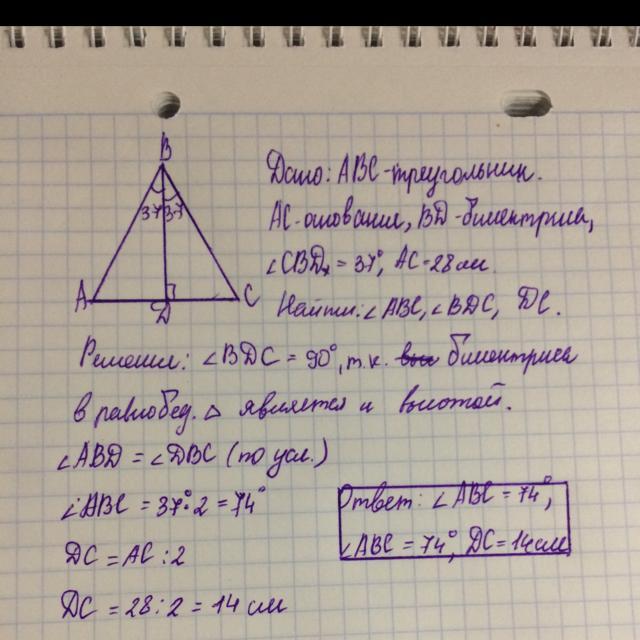 B
37 37
A D C
Дано: ABC-треугольник.
AC-онование, BD-биссектриса,
∠CBD = 37°, AC-28см.
Найти: ∠ABC, ∠BDC, DC.
Решение: ∠BDC = 90°, т.к. биссектриса
в равнобед. △ является и высотой.
∠ABD = ∠DBC (по усл.)
∠ABC = 37°·2 = 74°
DC = AC : 2
DC = 28 : 2 = 14 см
Ответ: ∠ABC = 74°,
∠ABC = 74°, DC = 14 см